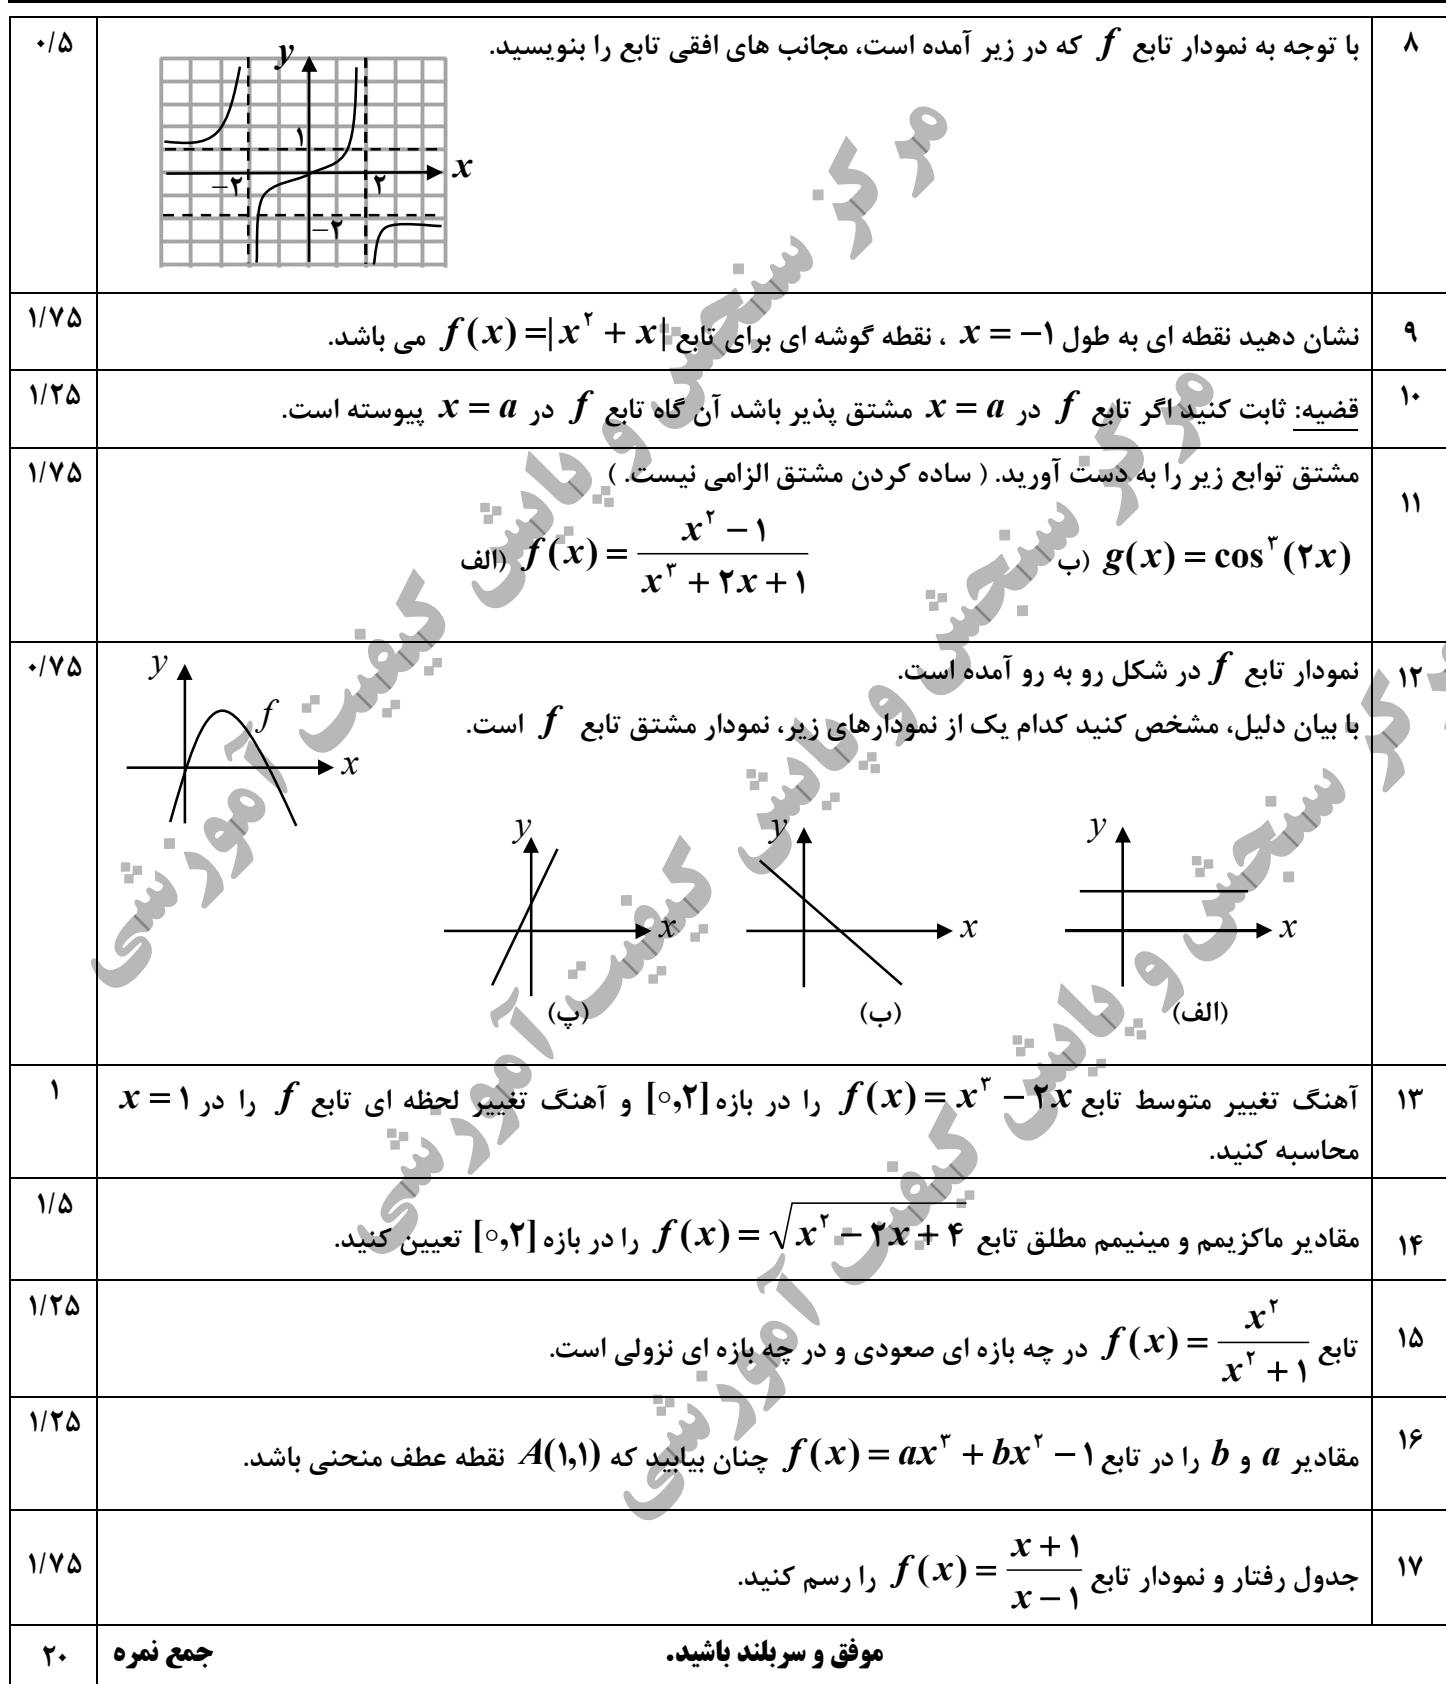 ۸ با توجه به نمودار تابع f که در زیر آمده است، مجانب های افقی تابع را بنویسید. ۰/۵
y
۱
x
−۲ ۲
−۲
۹ نشان دهید نقطه ای به طول x = −۱ ، نقطه گوشه ای برای تابع f(x) =| x^۲ + x | می باشد. ۱/۷۵
۱۰ قضیه: ثابت کنید اگر تابع f در x = a مشتق پذیر باشد آن گاه تابع f در x = a پیوسته است. ۱/۲۵
۱۱ مشتق توابع زیر را به دست آورید. ( ساده کردن مشتق الزامی نیست. ) ۱/۷۵
الف) f(x) = (x^۲ − ۱)/(x^۳ + ۲x + ۱) ب) g(x) = cos^۳(۲x)
۱۲ نمودار تابع f در شکل رو به رو آمده است. ۰/۷۵
با بیان دلیل، مشخص کنید کدام یک از نمودارهای زیر، نمودار مشتق تابع f است.
y
f
x
y y y
x x x
(الف) (ب) (پ)
۱۳ آهنگ تغییر متوسط تابع f(x) = x^۳ − ۲x را در بازه [۰,۲] و آهنگ تغییر لحظه ای تابع f را در x = ۱ ۱
محاسبه کنید.
۱۴ مقادیر ماکزیمم و مینیمم مطلق تابع f(x) = √(x^۲ − ۲x + ۴) را در بازه [۰,۲] تعیین کنید. ۱/۵
۱۵ تابع f(x) = x^۲/(x^۲ + ۱) در چه بازه ای صعودی و در چه بازه ای نزولی است. ۱/۲۵
۱۶ مقادیر a و b را در تابع f(x) = ax^۳ + bx^۲ − ۱ چنان بیابید که A(۱,۱) نقطه عطف منحنی باشد. ۱/۲۵
۱۷ جدول رفتار و نمودار تابع f(x) = (x + ۱)/(x − ۱) را رسم کنید. ۱/۷۵
موفق و سربلند باشید. جمع نمره ۲۰
مرکز سنجش و پایش کیفیت آموزشی
مرکز سنجش و پایش کیفیت آموزشی
مرکز سنجش و پایش کیفیت آموزشی